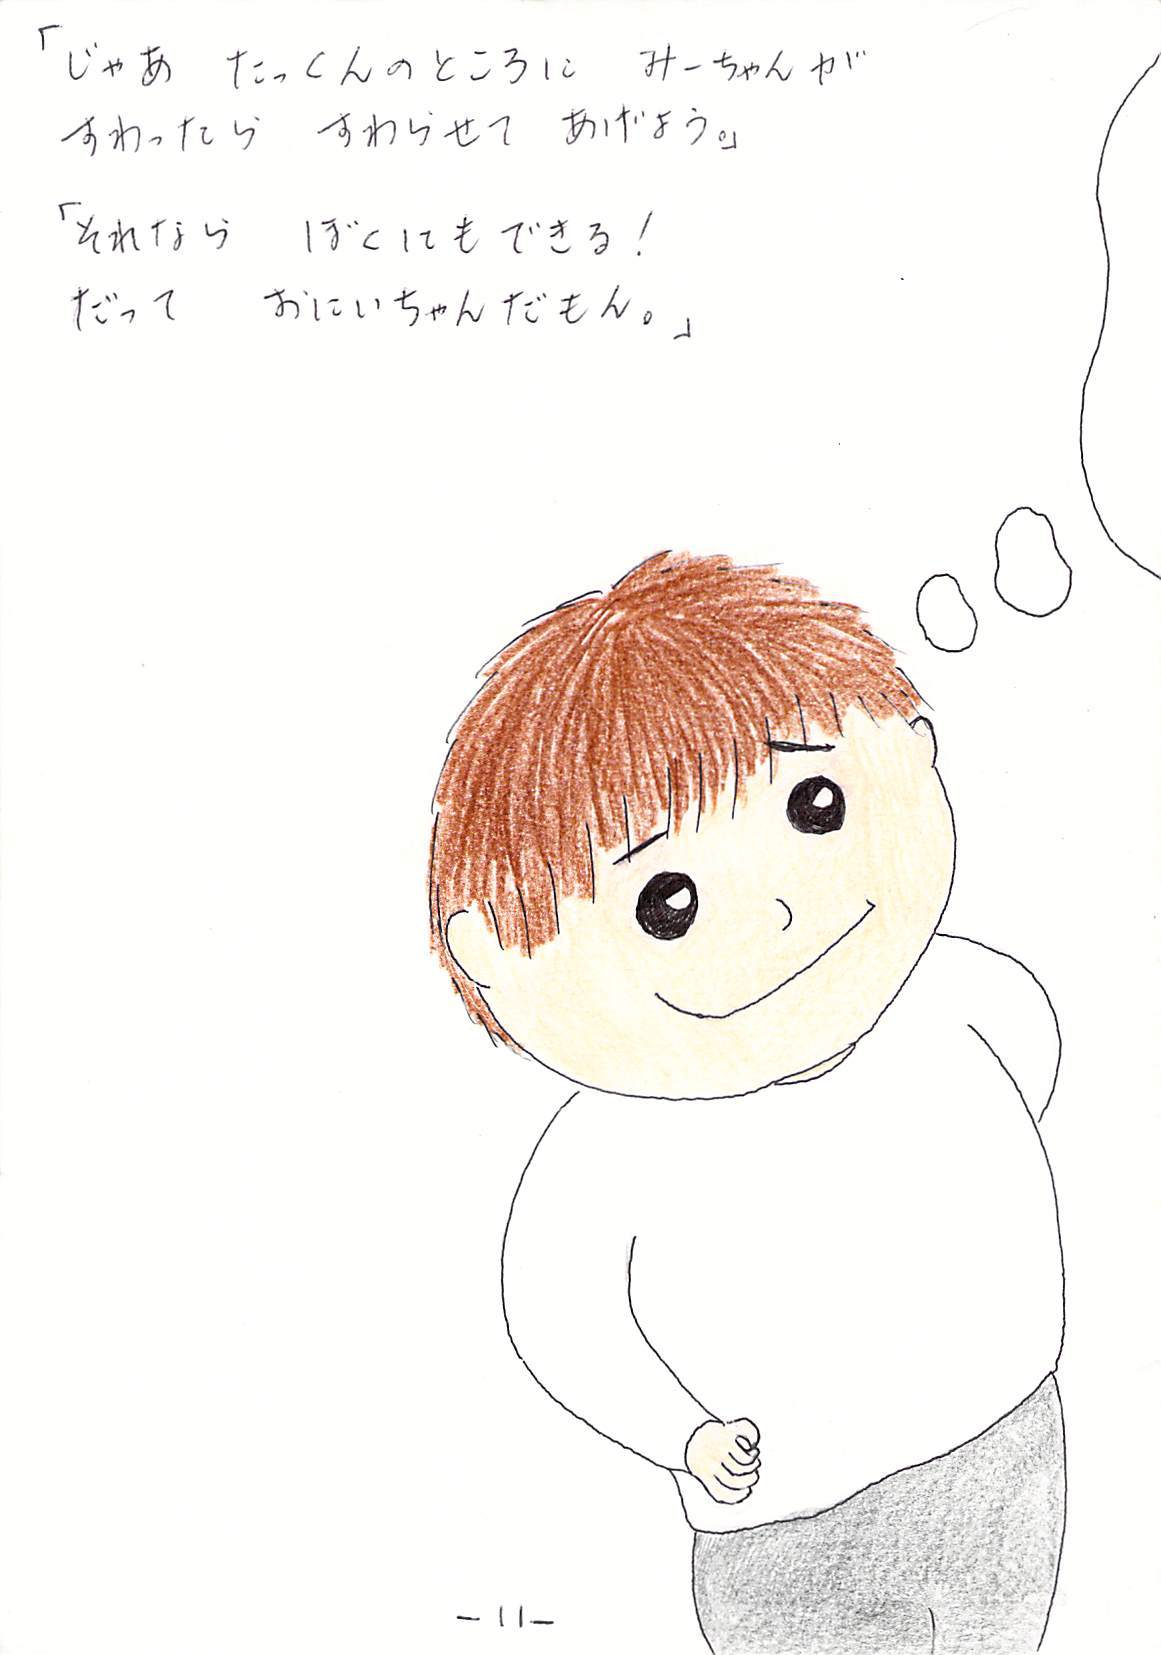 「じゃあ　たっくんのところに　みーちゃんが
すわったら　すわらせて　あげよう。」
「それなら　ぼくにもできる！
だって　おにいちゃんだもん。」
－11－